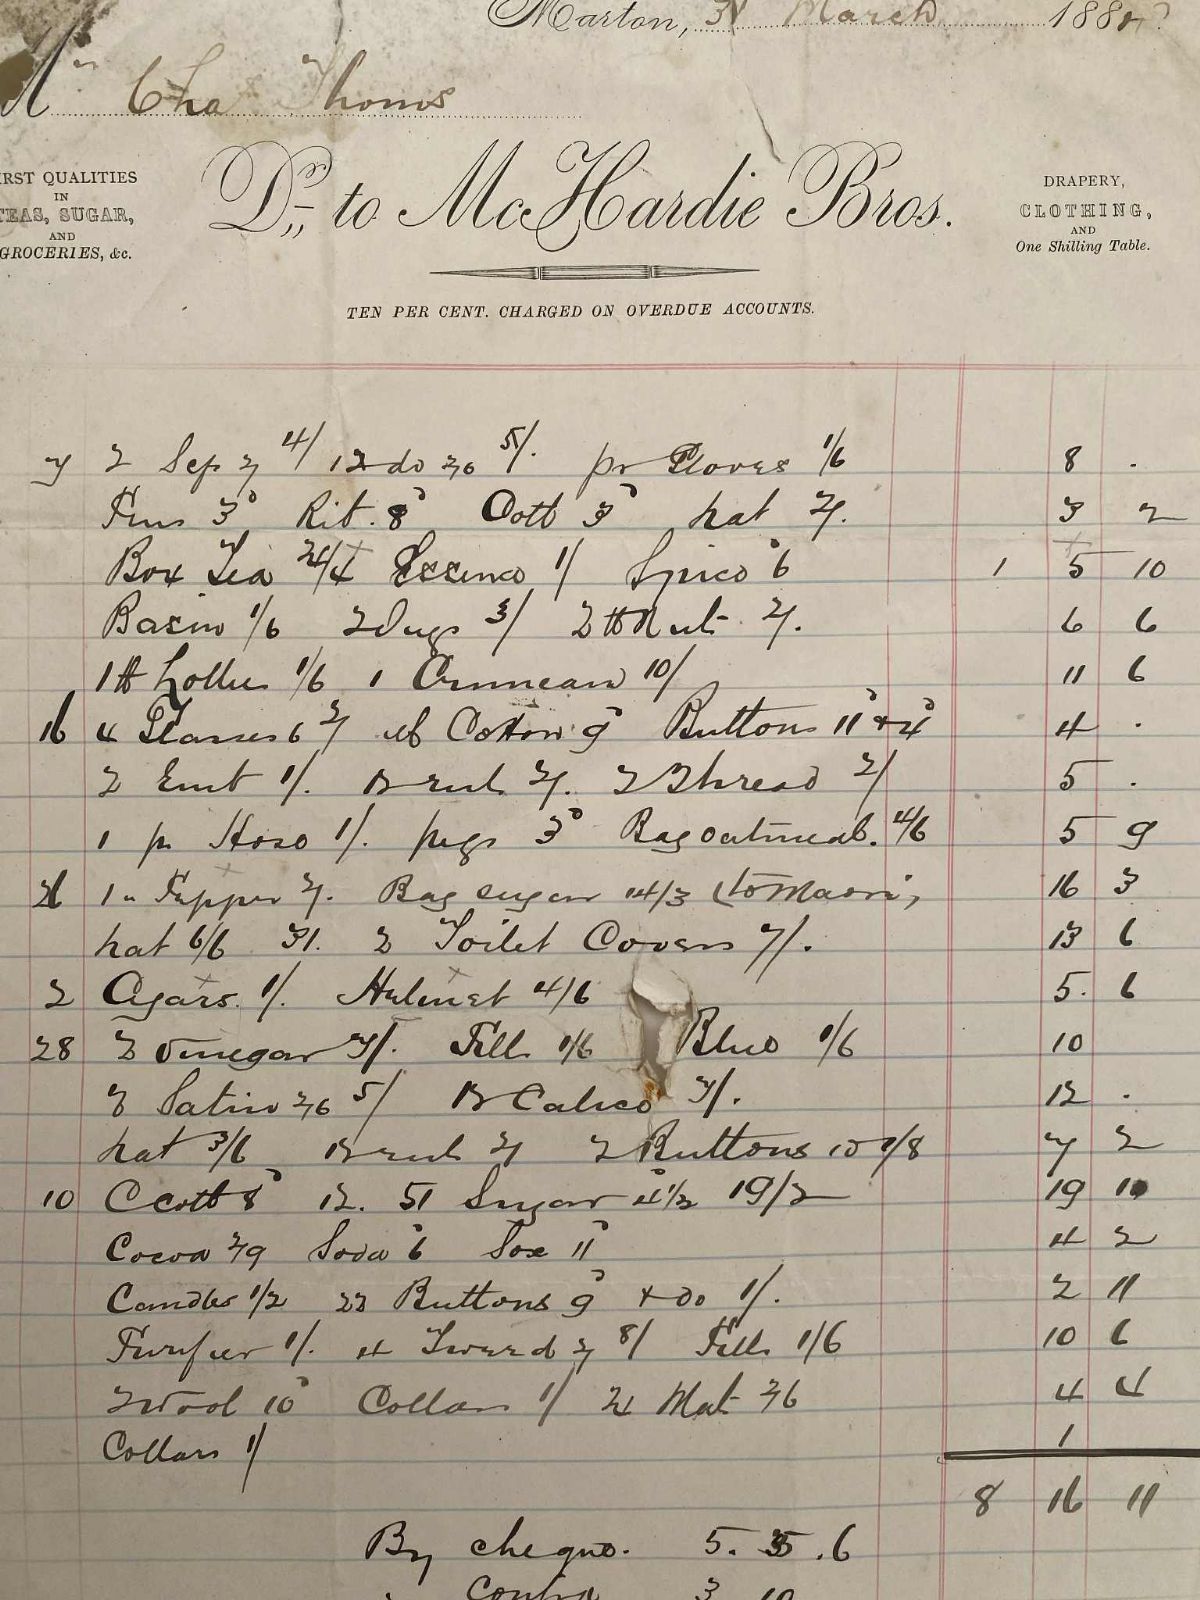 Marton, 31 March 188
Mr Chas Thoms
FIRST QUALITIES
IN
TEAS, SUGAR,
AND
GROCERIES, &c.
Dr. to McHardie Bros.
DRAPERY,
CLOTHING,
AND
One Shilling Table.
TEN PER CENT. CHARGED ON OVERDUE ACCOUNTS.
2 4/ 12 do 5/. pr Gloves 1/6 8 .
3 Rib. 8 Cott 3 hat 2/. 3 2
Box Tea 24/4 Essence 1/ Spice 6 1 5 10
Basin 1/6 2 3/ 2 lb 2/. 6 6
1 lb Lollies 1/6 1 10/ 11 6
16 4 Glasses 6 2/ Cotton 9 Buttons 11 + 4 4 .
2 1/. 2/. 2 Thread 2/ 5 .
1 pr Hose 1/. pegs 3 Bag oatmeal. 4/6 5 9
1 Pepper 2/. Bag sugar 14/3 (to Maori) 16 3
hat 6/6 2 Toilet Covers 7/. 13 6
2 Cgars. 1/. Helmet 4/6 5. 6
28 2 Vinegar Frill 1/6 Blue 1/6 10
2 Satin 2/6 5/ Calico 7/. 12 .
hat 3/6 2/ 2 Buttons 10 1/8 7 2
10 C cott 8 12. 51 Sugar 4 1/2 19/2 19 10
Cocoa 2/9 Soda 6 Sox 11 4 2
Candles 1/2 22 Buttons 9 + do 1/. 2 11
1/. 4 Tweed 2/ 8/ Frill 1/6 10 6
Wool 10 Collar 1/ Mat 2/6 4 4
Collars 1/ 1
8 16 11
By cheque. 5. .6
Contra 3 10